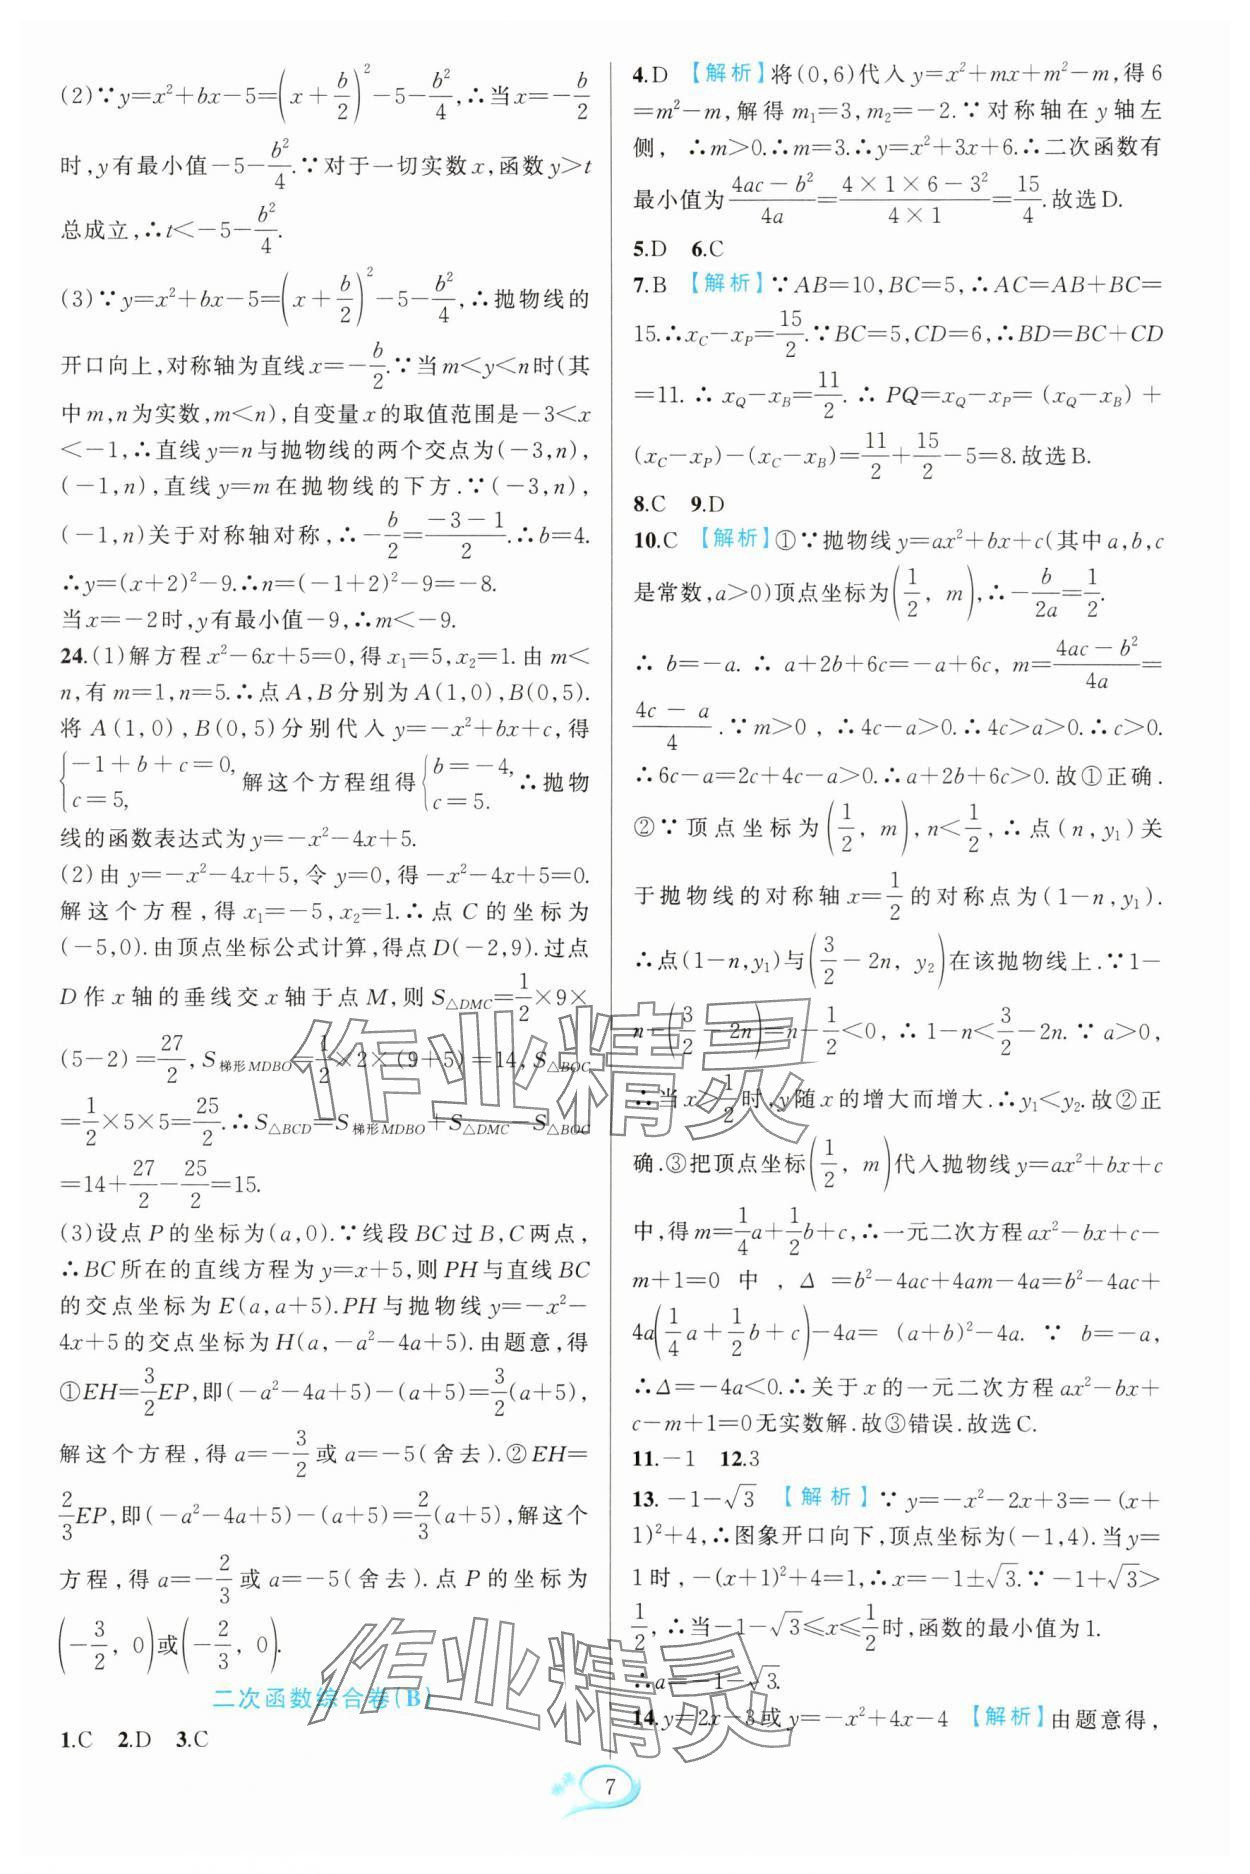 (2)∵y=x²+bx-5=(x+b/2)²-5-b²/4,∴当x=-b/2
时,y有最小值-5-b²/4.∵对于一切实数x,函数y>t
总成立,∴t<-5-b²/4.
(3)∵y=x²+bx-5=(x+b/2)²-5-b²/4,∴抛物线的
开口向上,对称轴为直线x=-b/2.∵当m<y<n时(其
中m,n为实数,m<n),自变量x的取值范围是-3<x
<-1,∴直线y=n与抛物线的两个交点为(-3,n),
(-1,n),直线y=m在抛物线的下方.∵(-3,n),
(-1,n)关于对称轴对称,∴-b/2=(-3-1)/2.∴b=4.
∴y=(x+2)²-9.∴n=(-1+2)²-9=-8.
当x=-2时,y有最小值-9,∴m<-9.
24.(1)解方程x²-6x+5=0,得x₁=5,x₂=1.由m<
n,有m=1,n=5.∴点A,B分别为A(1,0),B(0,5).
将A(1,0),B(0,5)分别代入y=-x²+bx+c,得
{-1+b+c=0, c=5, 解这个方程组得{b=-4, c=5. ∴抛物
线的函数表达式为y=-x²-4x+5.
(2)由y=-x²-4x+5,令y=0,得-x²-4x+5=0.
解这个方程,得x₁=-5,x₂=1.∴点C的坐标为
(-5,0).由顶点坐标公式计算,得点D(-2,9).过点
D作x轴的垂线交x轴于点M,则S△DMC=1/2×9×
(5-2)=27/2,S梯形MDBO=1/2×2×(9+5)=14,S△BOC
=1/2×5×5=25/2.∴S△BCD=S梯形MDBO+S△DMC-S△BOC
=14+27/2-25/2=15.
(3)设点P的坐标为(a,0).∵线段BC过B,C两点,
∴BC所在的直线方程为y=x+5,则PH与直线BC
的交点坐标为E(a,a+5).PH与抛物线y=-x²-
4x+5的交点坐标为H(a,-a²-4a+5).由题意,得
①EH=3/2EP,即(-a²-4a+5)-(a+5)=3/2(a+5),
解这个方程,得a=-3/2或a=-5(舍去).②EH=
2/3EP,即(-a²-4a+5)-(a+5)=2/3(a+5),解这个
方程,得a=-2/3或a=-5(舍去).点P的坐标为
(-3/2, 0)或(-2/3, 0).
二次函数综合卷(B)
1.C 2.D 3.C
4.D 【解析】将(0,6)代入y=x²+mx+m²-m,得6
=m²-m,解得m₁=3,m₂=-2.∵对称轴在y轴左
侧, ∴m>0.∴m=3.∴y=x²+3x+6.∴二次函数有
最小值为(4ac-b²)/4a=(4×1×6-3²)/(4×1)=15/4.故选D.
5.D 6.C
7.B 【解析】∵AB=10,BC=5,∴AC=AB+BC=
15.∴x_C-x_P=15/2.∵BC=5,CD=6,∴BD=BC+CD
=11.∴x_Q-x_B=11/2.∴PQ=x_Q-x_P=(x_Q-x_B)+
(x_C-x_P)-(x_C-x_B)=11/2+15/2-5=8.故选B.
8.C 9.D
10.C 【解析】①∵抛物线y=ax²+bx+c(其中a,b,c
是常数,a>0)顶点坐标为(1/2, m),∴-b/2a=1/2.
∴b=-a.∴a+2b+6c=-a+6c, m=(4ac-b²)/4a=
(4c-a)/4.∵m>0,∴4c-a>0.∴4c>a>0.∴c>0.
∴6c-a=2c+4c-a>0.∴a+2b+6c>0.故①正确.
②∵顶点坐标为(1/2, m),n<1/2,∴点(n,y₁)关
于抛物线的对称轴x=1/2的对称点为(1-n,y₁).
∴点(1-n,y₁)与(3/2-2n, y₂)在该抛物线上.∵1-
n-(3/2-2n)=n-1/2<0,∴1-n<3/2-2n.∵a>0,
∴当x>1/2时,y随x的增大而增大.∴y₁<y₂.故②正
确.③把顶点坐标(1/2, m)代入抛物线y=ax²+bx+c
中,得m=1/4a+1/2b+c,∴一元二次方程ax²-bx+c-
m+1=0中,Δ=b²-4ac+4am-4a=b²-4ac+
4a(1/4a+1/2b+c)-4a=(a+b)²-4a.∵b=-a,
∴Δ=-4a<0.∴关于x的一元二次方程ax²-bx+
c-m+1=0无实数解.故③错误.故选C.
11.-1 12.3
13.-1-√3 【解析】∵y=-x²-2x+3=-(x+
1)²+4,∴图象开口向下,顶点坐标为(-1,4).当y=
1时,-(x+1)²+4=1,∴x=-1±√3.∵-1+√3>
1/2,∴当-1-√3≤x≤1/2时,函数的最小值为1.
∴a=-1-√3.
14.y=2x-3或y=-x²+4x-4 【解析】由题意得,
作业精灵
作业精灵
7